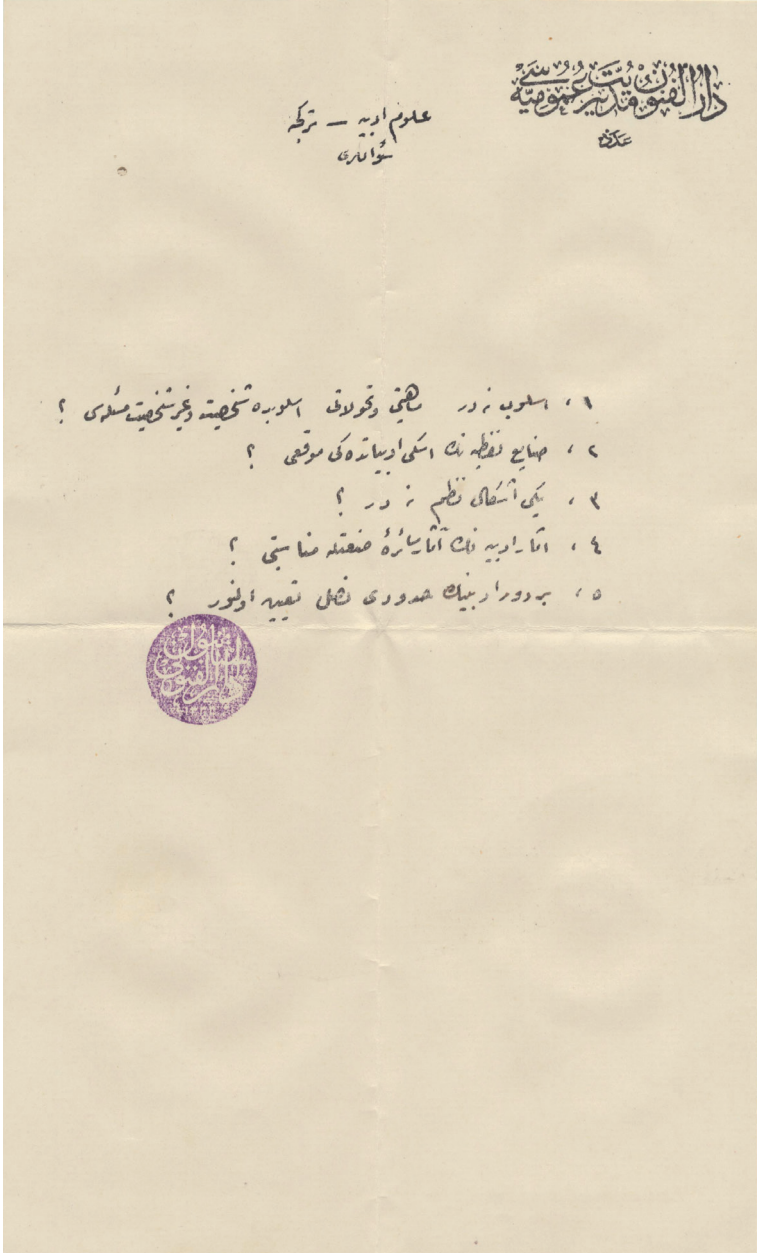 دار الفنون مديريت عموميه سى
عدد
علوم ادبيه — تركجه
سؤاللرى
١، اسلوب نه در ماهيتى وتحولاتى اسلوبده شخصيت وغير شخصيت مسئله سى ؟
٢، صنايع لفظيه نك اسكى ادبياتده كى موقعى ؟
٣، يكى اشكال نظم نه در ؟
٤، آثار ادبيه نك آثار سائرۀ صنعتله مناسبتى ؟
٥، بر دور ادبينك حدودى نصل تعيين اولنور ؟
استانبول
دار الفنونى